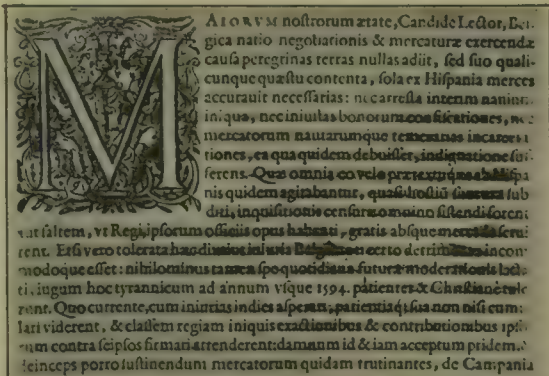 MAIORVM noſtrorum ætate, Candide Lector, Bel-
gica natio negotiationis & mercaturæ exercendæ
cauſa peregrinas terras nullas adiit, ſed ſuo quali-
cunque quæſtu contenta, ſola ex Hiſpania merces
accurauit neceſſarias: nec arreſta interim nauium
iniqua, nec iniuſtas bonorum confiſcationes, nec
mercatorum nautarumque temerarias incarcera
tiones, ea qua quidem debuiſſet, indignatione ſuf-
ferens. Quæ omnia eo velo prætextuque ab Hiſpa
nis quidem agitabantur, quaſi hoſtiū ſub
diti, inquiſitionis cenſura omnino ſiſtendi forent:
aut ſaltem, vt Regi, ipſorum officiis opus habenti, gratis absque mercede ſerui
rent. Etſi vero tolerata hæc iniuria certo detrimento incom
modoque eſſet: nihilominus tamen ſpe quotidiana futuræ moderationis lacta
ti, iugum hoc tyrannicum ad annum vſque 1594. patienter & Chriſtianè tule
runt. Quo currente, cum iniurias indies aſperari, patientiaq́; ſua non niſi cumu
lari viderent, & claſſem regiam iniquis exactionibus & contributionibus ipſo
rum contra ſeipſos firmari attenderent: damnum id & iam acceptum pridem, &
deinceps porro ſuſtinendum mercatorum quidam trutinantes, de Campania